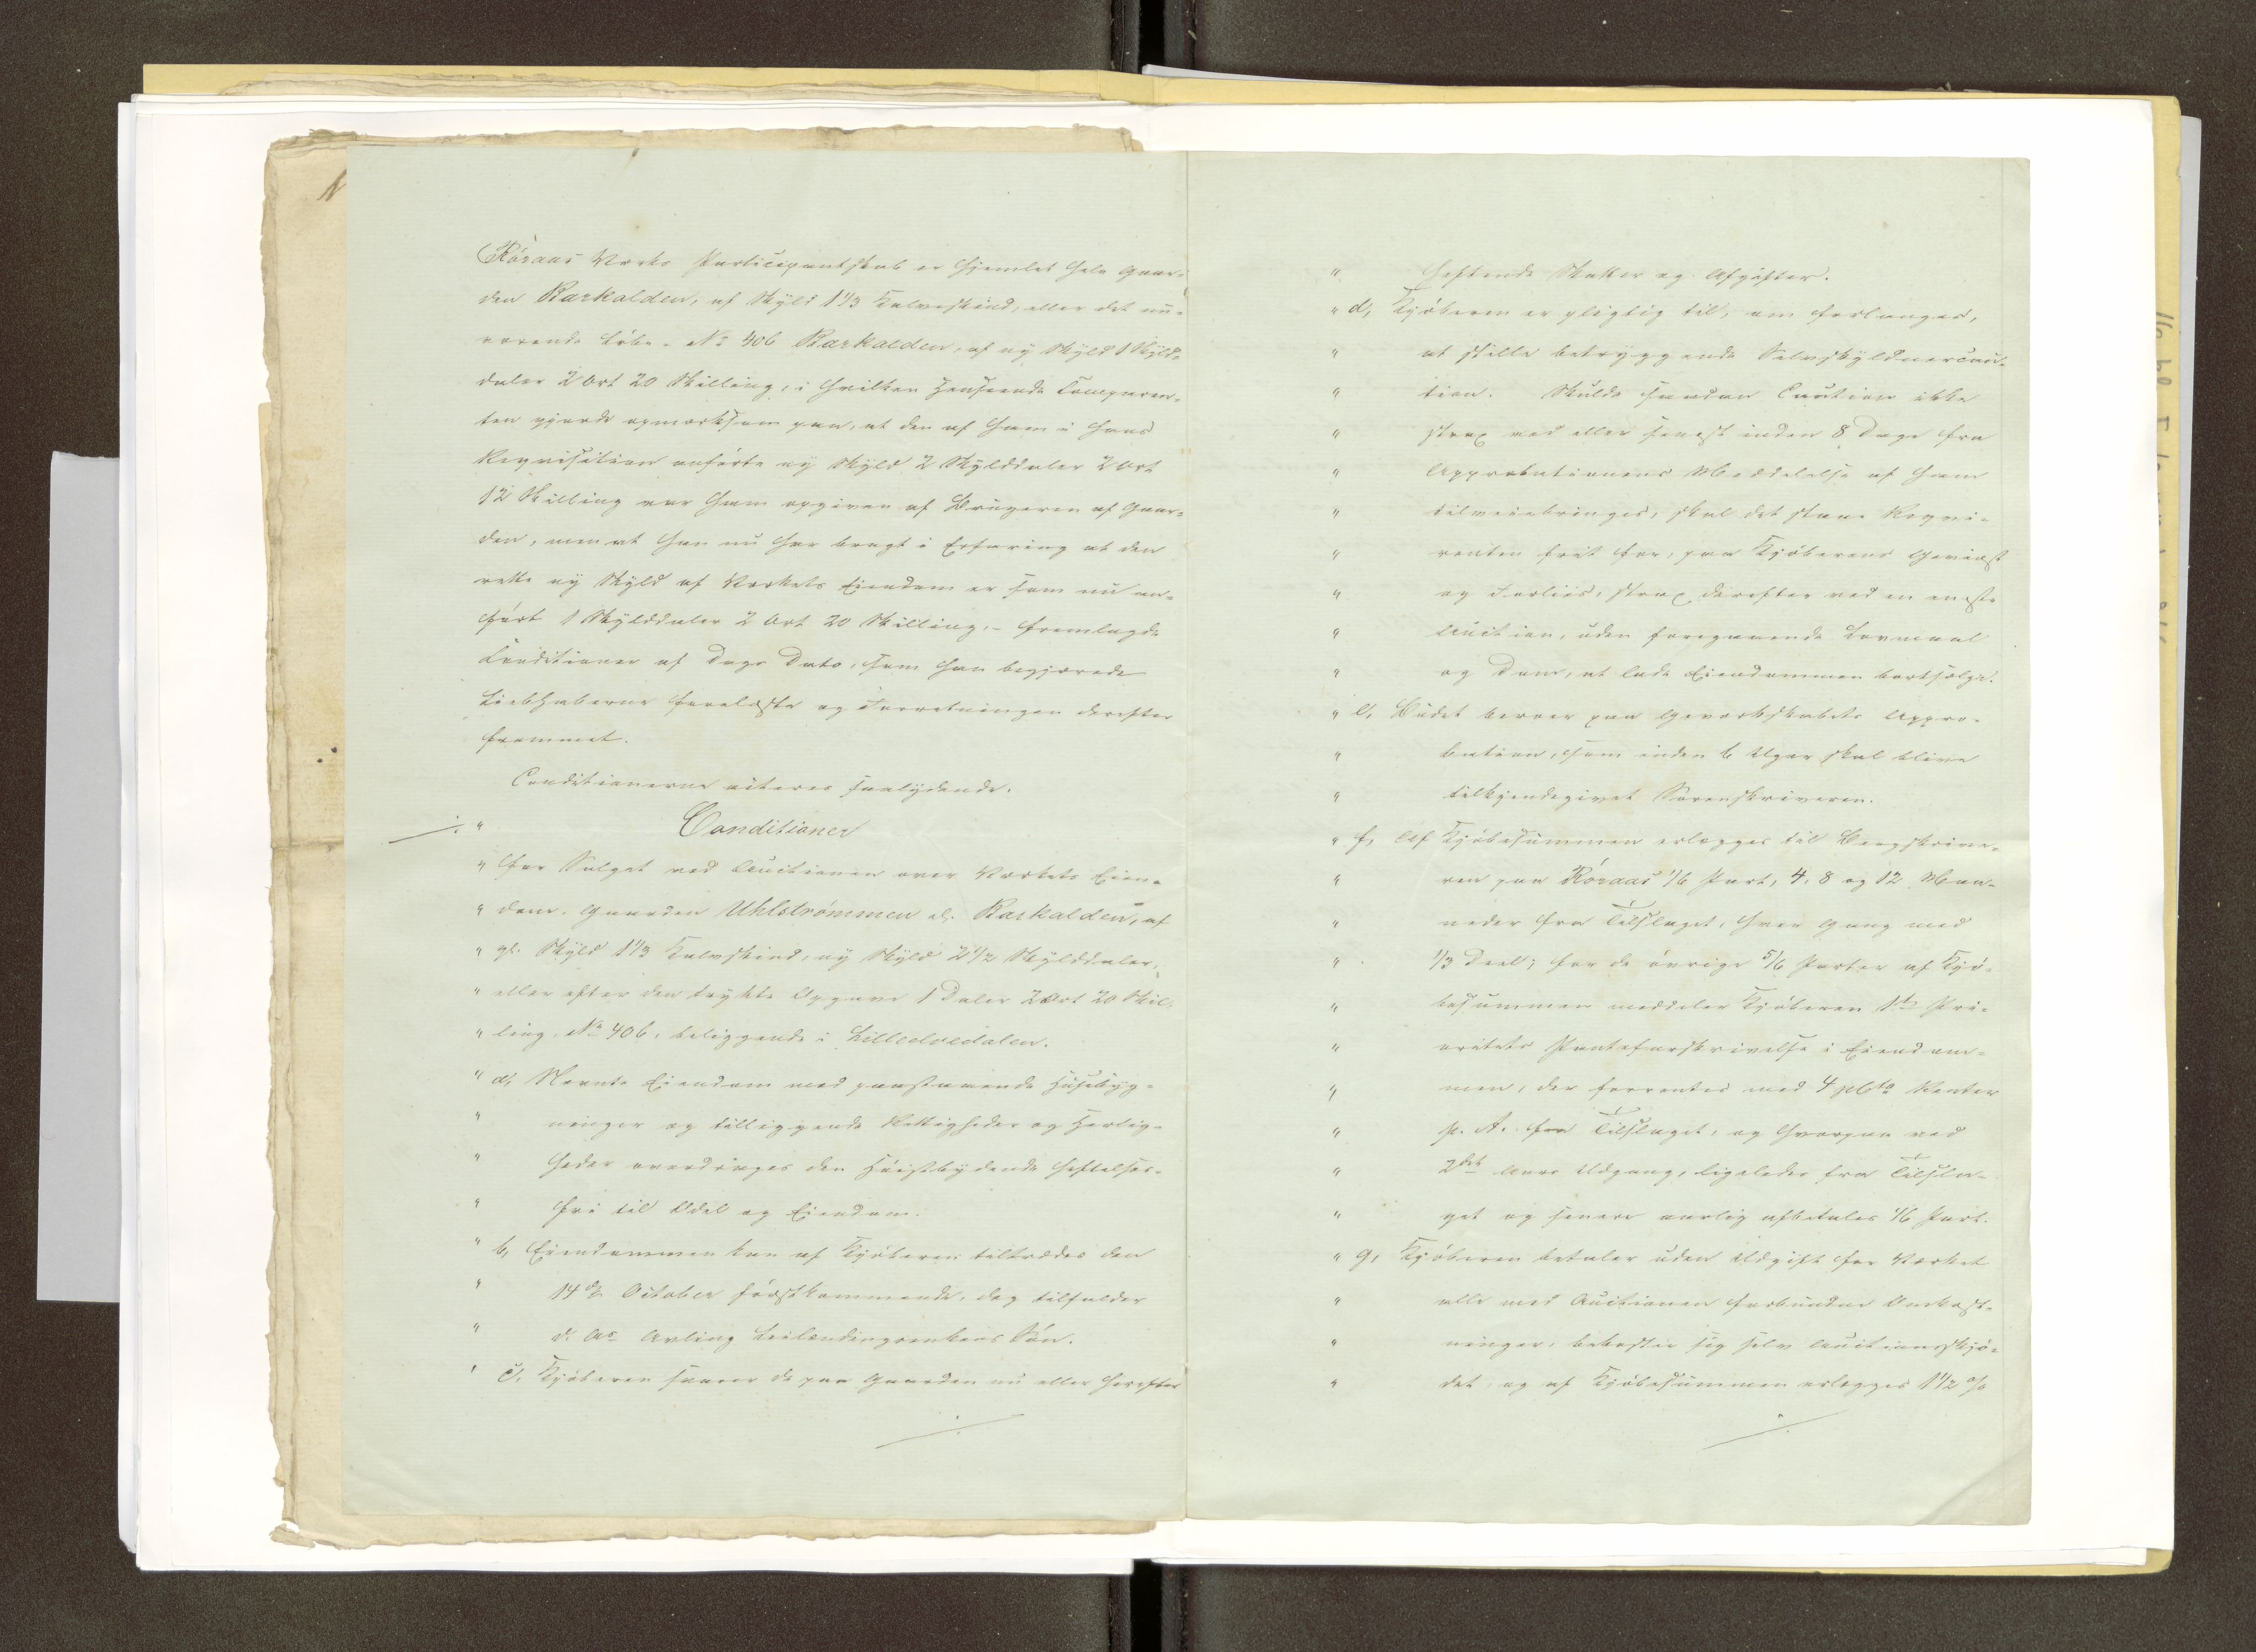 Röraas Værks Participantskab er hjemlet hele Gaar-
den Barkalden, af Skyld 1 1/3 Kalveskind, eller det nu-
værende Løbe-No 406 Barkalden, af ny Skyld 1 Skyld-
daler 2 Ort 20 Skilling, i hvilken Henseende Comparen-
ten gjorde opmærksom paa, at den af ham i hans
Reqvisition anførte ny Skyld 2 Skylddaler 2 Ort
12 Skilling var ham opgiven af Brugeren af Gaar-
den, men at han nu har bragt i Erfaring at den
rette ny Skyld af Værkets Eiendom er som nu an-
ført 1 Skylddaler 2 Ort 20 Skilling, - fremlagde
Conditioner af Dags Dato, som han begjærede
Liebhaberne forelæste og Forretningen derefter
fremmet.
Conditionerne citeres saalydende.
" Conditioner
" for Salget ved Auctionen over Værkets Eien-
" dom, Gaarden Uhlströmmen el. Barkalden, af
" gl. Skyld 1 1/3 Kalvskind, ny Skyld 2 1/2 Skylddaler,
" eller efter den trykte Opgave 1 Daler 2 Ort 20 Skil-
" ling, No 406, beliggende i Lilleelvedalen.
" a, Nævnte Eiendom med paastaaende Husebyg-
" ninger og tilliggende Rettigheder og Herlig-
" heder overdrages den Høistbydende heftelses-
" fri til Odel og Eiendom.
" b, Eiendommen kan af Kjøberen tiltrædes den
" 14de October førstkommende, dog tilfalder
" d. As Avling Leilændingsenkens Søn.
" c, Kjøberen svarer de paa Gaarden nu eller herefter
" heftende Skatter og Afgifter.
" d, Kjøberen er pligtig til, om forlanges,
" at stille betryggende Selvskyldnercau-
" tion. Skulde saadan Caution ikke
" strax ved eller senest inden 8 Dage fra
" Approbationens Meddelelse af ham
" tilveiebringes, skal det staae Reqvi-
" renten frit for, paa Kjøberens Gevinst
" og Forliis, strax derefter ved en eneste
" Auction, uden foregaaende Lovmaal
" og Dom, at lade Eiendommen bortsælge.
" e, Budet beroer paa Geværkskabets Appro-
" bation, som inden 6 Uger skal blive
" tilkjendegivet Sorenskriveren.
" f, Af Kjøbesummen erlægges til Bergskrive-
" ren paa Röraas 1/6 Part, 4, 8 og 12 Maa-
" neder fra Tilslaget, hver Gang med
" 1/3 Deel; for de øvrige 5/6 Parter af Kjø-
" besummen meddeler Kjøberen 1ste Pri-
" oritets Panteforskrivelse i Eiendom-
" men, der forrentes med 4 pCto Renter
" p. A. fra Tilslaget, og hvorpaa ved
" 2det Aars Udgang, ligeledes fra Tilsla-
" get og senere aarlig afbetales 1/6 Part.
" g, Kjøberen betaler uden Udgift for Værket
" alle med Auctionen forbundne Omkost-
" ninger, bekoster sig selv Auctionsskjø-
" det, og af Kjøbesummen erlægges 1 1/2 %